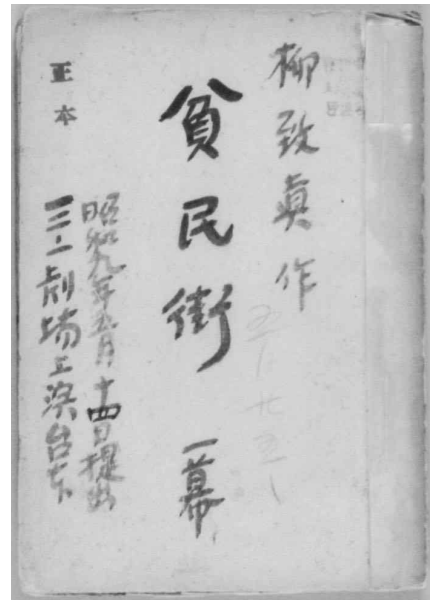 柳致眞作
貧民街 一幕
正本
昭和九年五月十四日提出
三一劇場上演台本